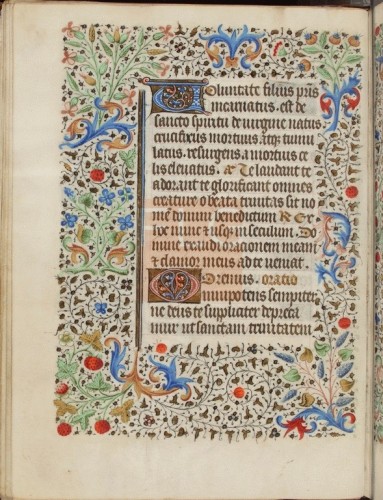 Voluntate filius pris
incarnatus. est de
sancto spiritu de virgine natus
crucifixus mortuus. atq; tumu
latus. resurgens a mortuis ce
lis eleuatus. Te laudant te
adorant te glorificant omnes
creature o beata trinitas sit no
men domini benedictum R Ex
hoc nunc et usq; in seculum. Do
mine exaudi orationem meam
et clamor meus ad te ueniat.
Oremus. oratio
Omnipotens sempiter
ne deus te supliciter depreca
mur ut sanctam trinitatem